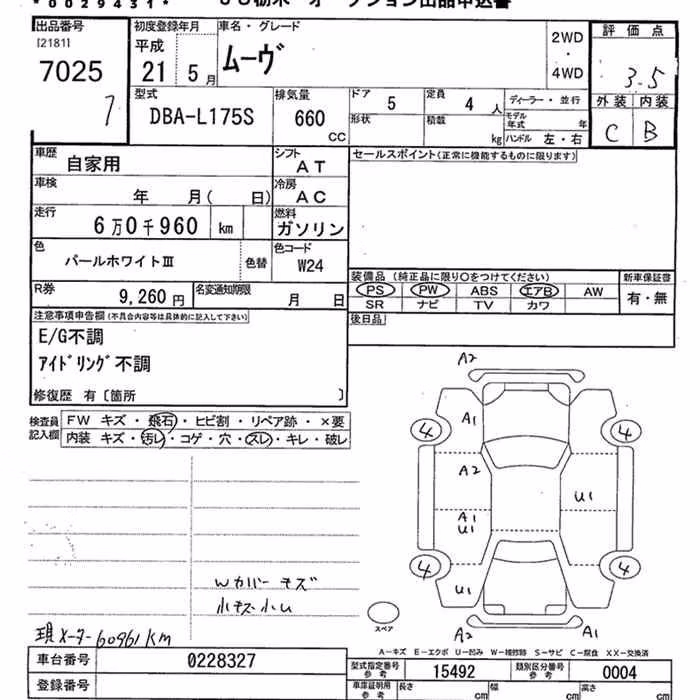 *0029431* JU栃木 オークション出品申込書
出品番号 初度登録年月 車名・グレード 評価点
[2181] 平成 2WD
7025 21 5月 ムーヴ ・ 3.5
4WD
7 型式 排気量 ドア 5 定員 4人 ディーラー・並行 外装 内装
DBA-L175S 660 CC 形状 積載 kg モデル年式 年 C B
ハンドル 左・右
車歴 自家用 シフト AT セールスポイント(正常に機能するものに限ります)
車検 年 月( 日) 冷房 AC
走行 6万0千960 km 燃料 ガソリン
色 パールホワイトⅢ 色替 色コード W24
装備品 (純正品に限り○をつけてください) 新車保証書
R券 9,260円 名変通知期限 月 日 PS PW ABS エアB AW 有・無
SR ナビ TV カワ
注意事項申告欄 (不具合内容等は具体的に記入して下さい) 後日品
E/G不調
アイドリング不調
修復歴 有〔箇所 〕
検査員 FW キズ・飛石・ヒビ割・リペア跡・×要
記入欄 内装 キズ・汚レ・コゲ・穴・スレ・キレ・破レ
A2
A1
4 4
A2
U1
A1
U1
4 4
U1
Wカバーキズ
小キズ小U
スペア
A2 A1
現メーター60961Km
A-キズ E-エクボ U-凹み W-補修跡 S-サビ C-腐食 XX-交換済
車台番号 0228327 型式指定番号 参考 15492 類別区分番号 参考 0004
登録番号 車庫証明用 参考 長さ cm 幅 cm 高さ cm